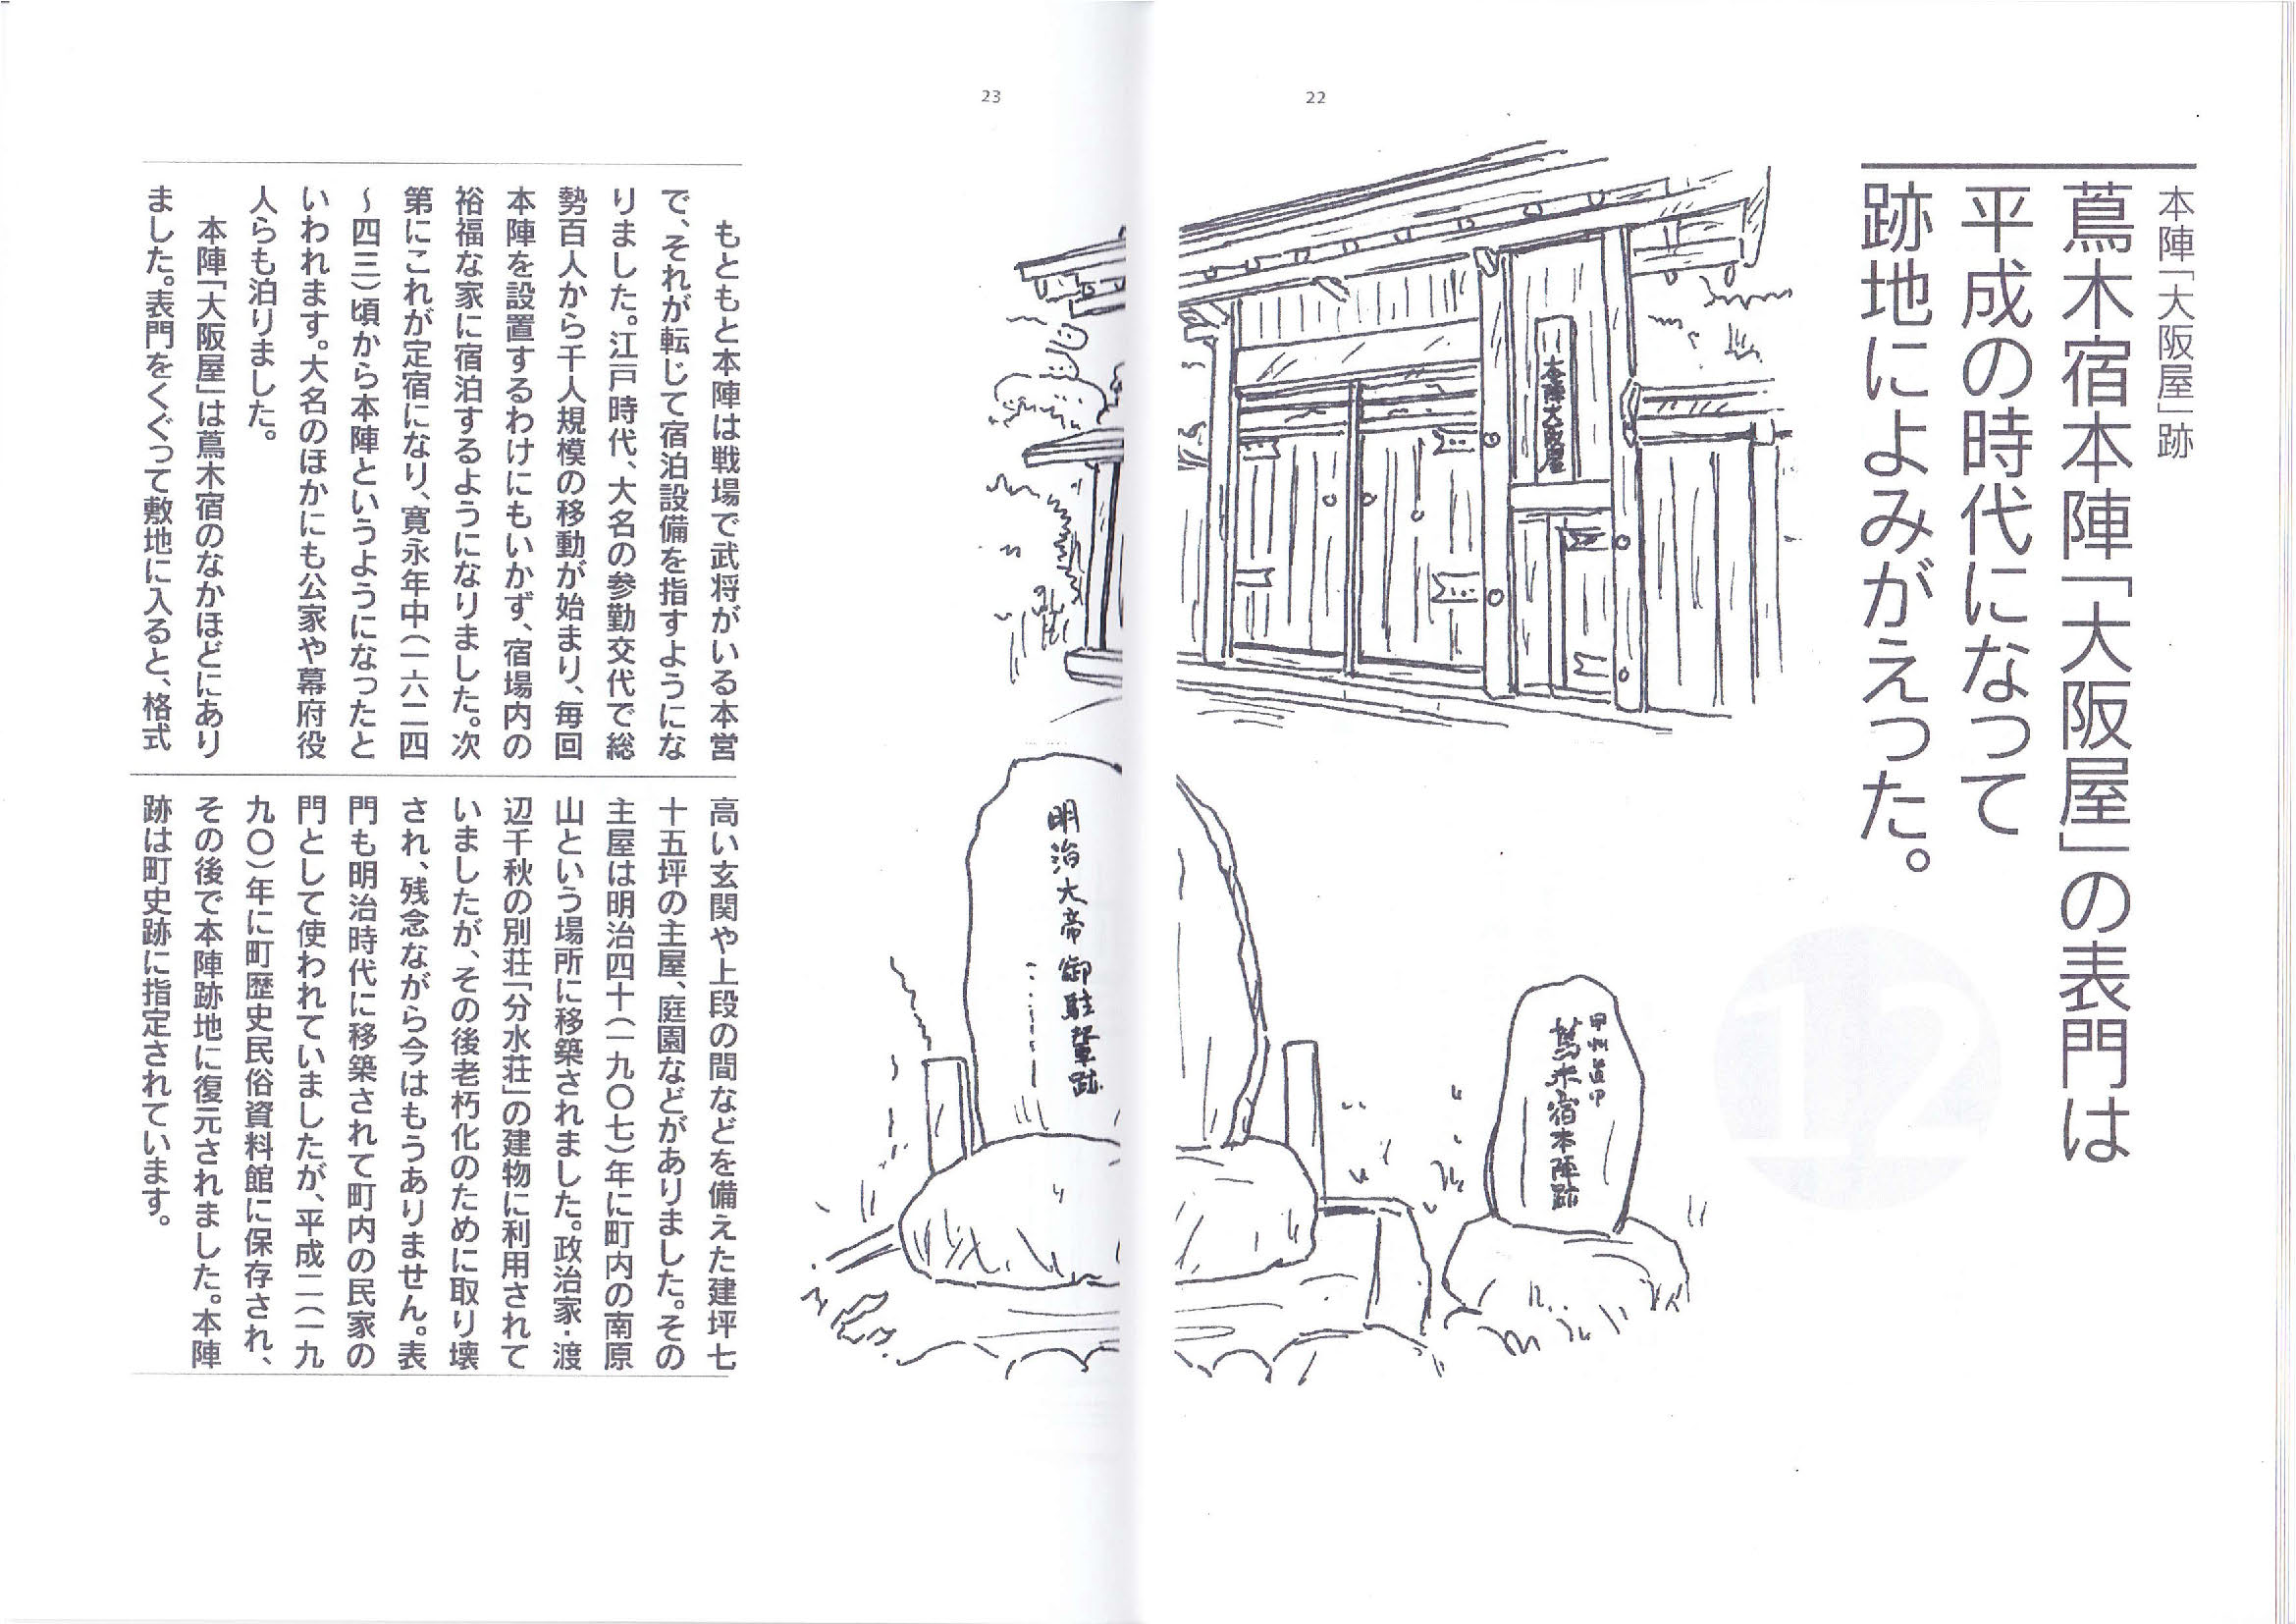 22
本陣「大阪屋」跡
蔦木宿本陣「大阪屋」の表門は
平成の時代になって
跡地によみがえった。
12
本陣大阪屋
甲州道中
蔦木宿本陣跡
明治大帝御駐輦跡
23
もともと本陣は戦場で武将がいる本営
で、それが転じて宿泊設備を指すようにな
りました。江戸時代、大名の参勤交代で総
勢百人から千人規模の移動が始まり、毎回
本陣を設置するわけにもいかず、宿場内の
裕福な家に宿泊するようになりました。次
第にこれが定宿になり、寛永年中（一六二四
〜四三）頃から本陣というようになったと
いわれます。大名のほかにも公家や幕府役
人らも泊りました。
本陣「大阪屋」は蔦木宿のなかほどにあり
ました。表門をくぐって敷地に入ると、格式
高い玄関や上段の間などを備えた建坪七
十五坪の主屋、庭園などがありました。その
主屋は明治四十（一九〇七）年に町内の南原
山という場所に移築されました。政治家・渡
辺千秋の別荘「分水荘」の建物に利用されて
いましたが、その後老朽化のために取り壊
され、残念ながら今はもうありません。表
門も明治時代に移築されて町内の民家の
門として使われていましたが、平成二（一九
九〇）年に町歴史民俗資料館に保存され、
その後で本陣跡地に復元されました。本陣
跡は町史跡に指定されています。